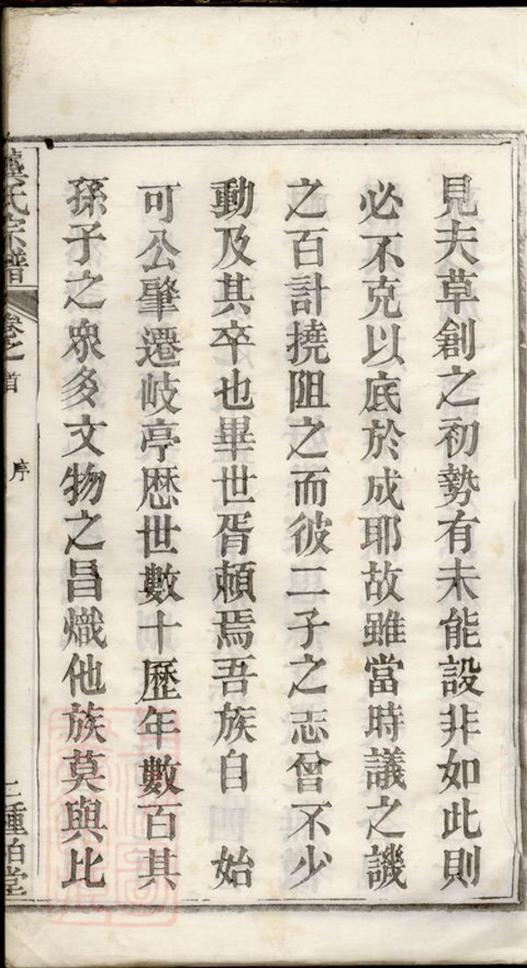 見夫草創之初勢有未能設非如此則
必不克以底於成耶故雖當時議之譏
之百計撓阻之而彼二子之志曾不少
動及其卒也畢世胥頼焉吾族自 始
可公肇遷岐亭歷世數十歷年數百其
孫子之衆多文物之昌熾他族莫與比
氏宗譜
卷之首
序